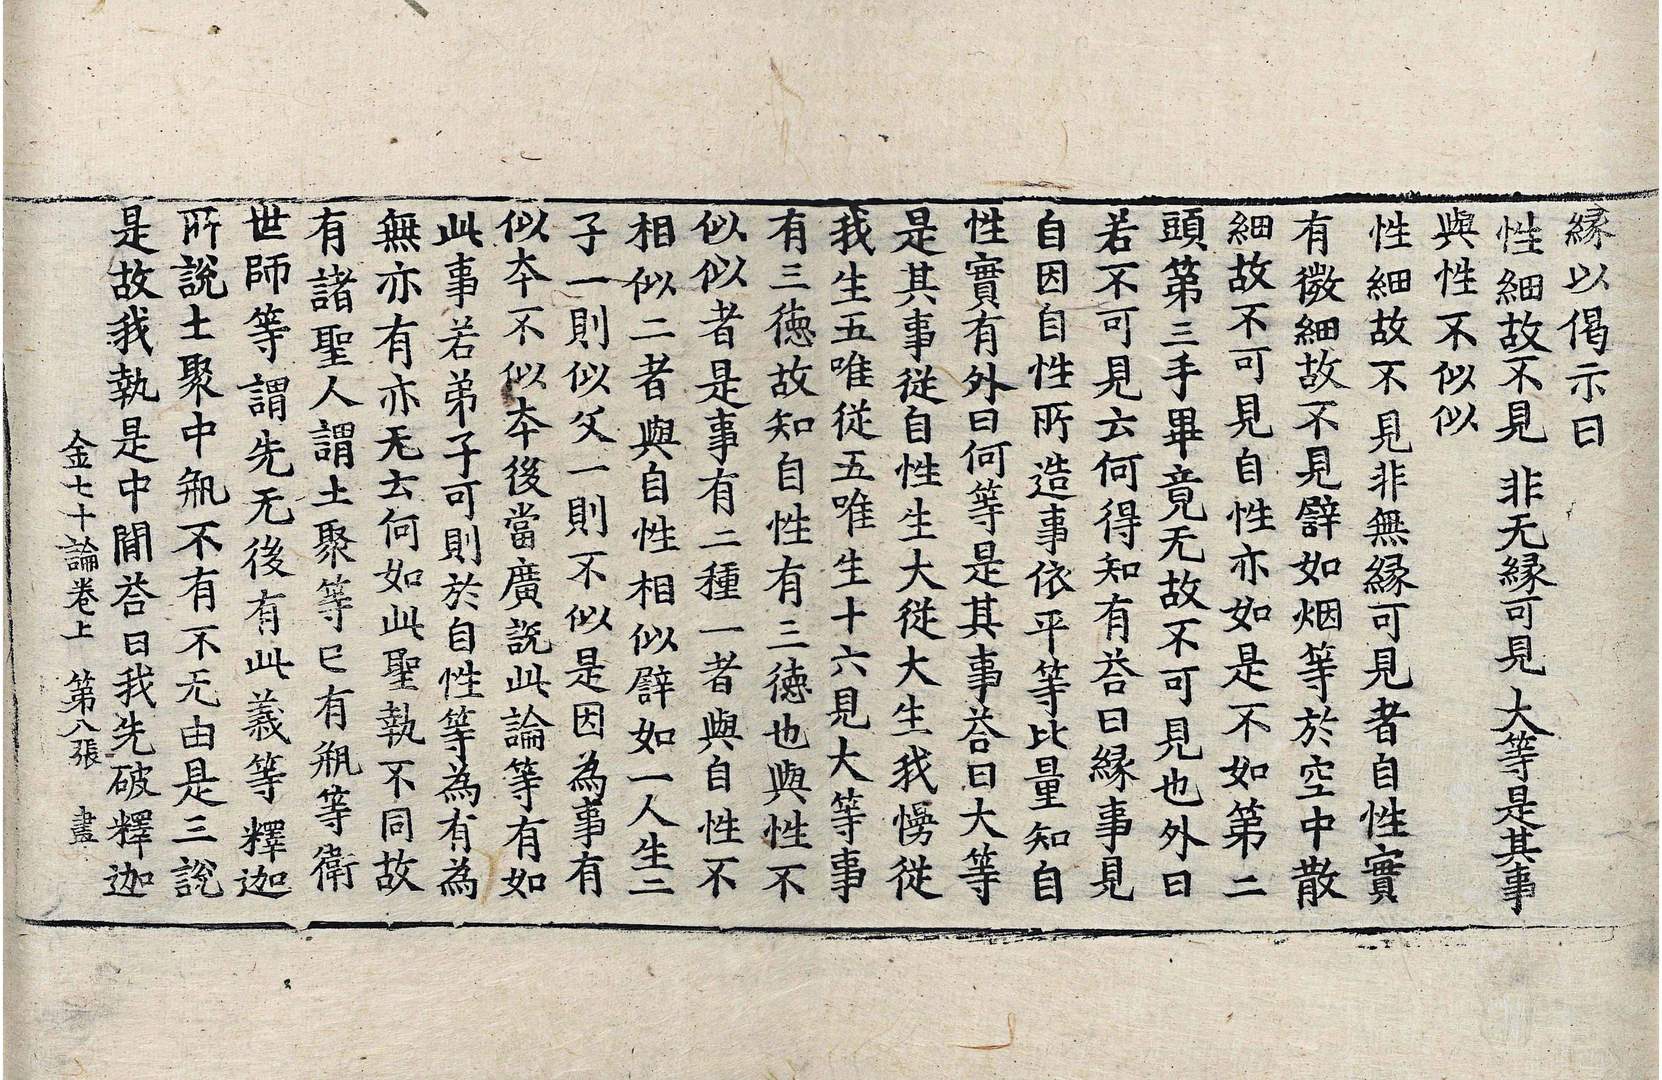 縁以偈示曰
性細故不見 非无縁可見 大等是其事
與性不似似
性細故不見非無縁可見者自性實
有微細故不見譬如烟等於空中散
細故不可見自性亦如是不如第二
頭第三手畢竟无故不可見也外曰
若不可見云何得知有荅曰縁事見
自因自性所造事依平等比量知自
性實有外曰何等是其事荅曰大等
是其事従自性生大従大生我慢従
我生五唯従五唯生十六見大等事
有三徳故知自性有三徳也與性不
似似者是事有二種一者與自性不
相似二者與自性相似譬如一人生二
子一則似父一則不似是因為事有
似夲不似夲後當廣說此論等有如
此事若弟子可則於自性等為有為
無亦有亦无云何如此聖執不同故
有諸聖人謂土聚等已有瓶等衛
世師等謂先无後有此義等釋迦
所說土聚中瓶不有不无由是三說
是故我執是中間荅曰我先破釋迦
金七十論卷上 第八張 盡